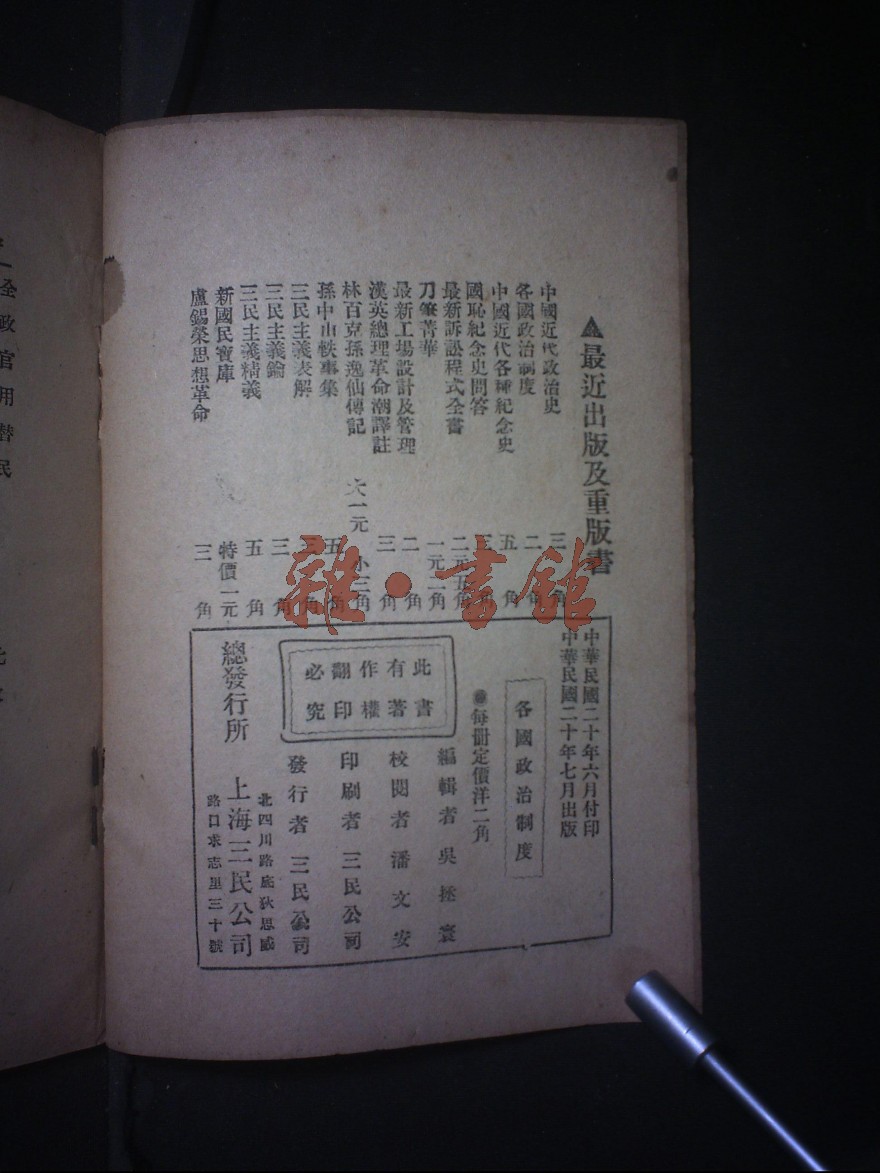 ▲最近出版及重版書
中國近代政治史 三角
各國政治制度 二角
中國近代各種紀念史 五角
國恥紀念史問答 角
最新訴訟程式全書 二元五角
刀筆菁華 一元二角
最新工場設計及管理 二角
漢英總理革命潮譯註 三角
林百克孫逸仙傳記 大一元 小三角
孫中山軼事集 五角
三民主義表解 角
三民主義鑰 三角
三民主義精義 五角
新國民寶庫 特價一元
盧錫榮思想革命 三角
中華民國二十年六月付印
中華民國二十年七月出版
各國政治制度
每冊定價洋二角
編輯者 吳拯寰
校閱者 潘文安
印刷者 三民公司
發行者 三民公司
此書
有著
作權
翻印
必究
總發行所 上海三民公司
北四川路底狄思威
路口求志里三十號
雜·書館
全政官用替民